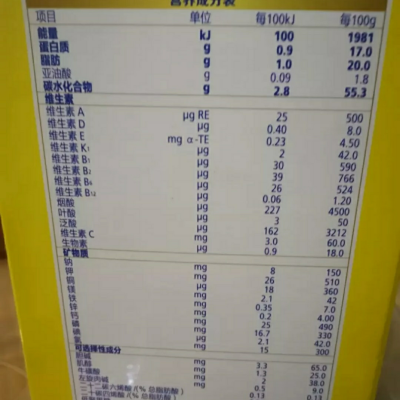 营养成分表
项目 单位 每100kJ 每100g
能量 kJ 100 1981
蛋白质 g 0.9 17.0
脂肪 g 1.0 20.0
亚油酸 g 0.09 1.8
碳水化合物 g 2.8 55.3
维生素
维生素 A μg RE 25 500
维生素 D μg 0.40 8.0
维生素 E mg α-TE 0.23 4.50
维生素 K₁ μg 2 42.0
维生素 B₁ μg 30 590
维生素 B₂ μg 39 766
维生素 B₆ μg 26 524
维生素 B₁₂ μg 0.06 1.20
烟酸 μg 227 4500
叶酸 μg 3 50
泛酸 μg 162 3212
维生素 C mg 3.0 60.0
生物素 μg 0.9 18.0
矿物质
钠 mg 8 150
钾 mg 26 510
铜 μg 18 360
镁 mg 2.1 42
铁 mg 0.35 7.0
锌 mg 0.2 4.00
钙 mg 25 490
磷 mg 16.7 330
碘 μg 2.1 42.0
氯 mg 15 300
可选择性成分
胆碱 mg 3.3 65.0
肌醇 mg 1.3 25.0
牛磺酸 mg 2 38.0
左旋肉碱 mg 0.5 9.0
二十二碳六烯酸 (% 总脂肪酸) 0.13 0.13
二十碳四烯酸 (% 总脂肪酸)